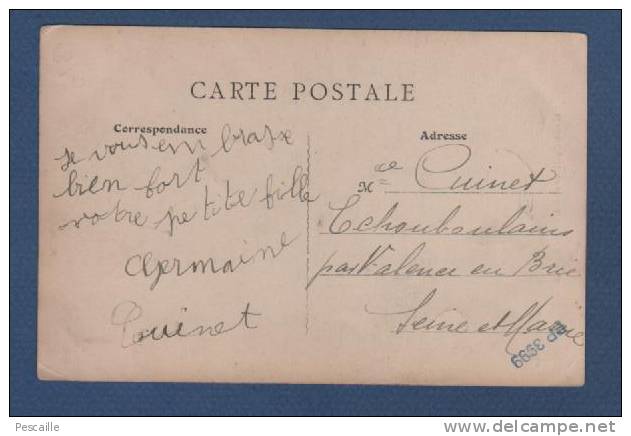 CARTE POSTALE
Correspondance
je vous em brasse
bien fort
votre petite fille
Germaine
Cuinet
Adresse
M de Cuinet
Echouboulains
par Valence en Brie
Seine et Marne
CP 3999
Pescaille
www.delcampe.net